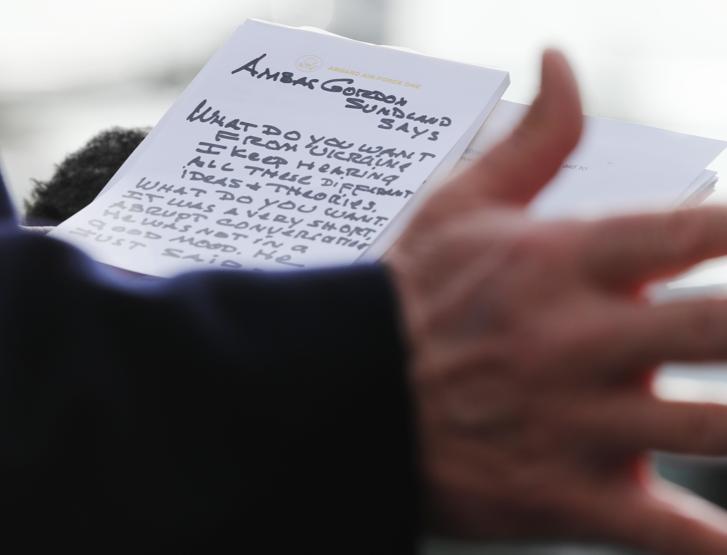 ABOARD AIR FORCE ONE
AMBAS GORDON
SUNDLAND
SAYS
WHAT DO YOU WANT
FROM UKRAINE
I KEEP HEARING
ALL THESE DIFFERENT
IDEAS & THEORIES.
WHAT DO YOU WANT
IT WAS A VERY SHORT,
ABRUPT CONVERSATION
HE WAS NOT IN A
GOOD MOOD. HE
JUST SAID